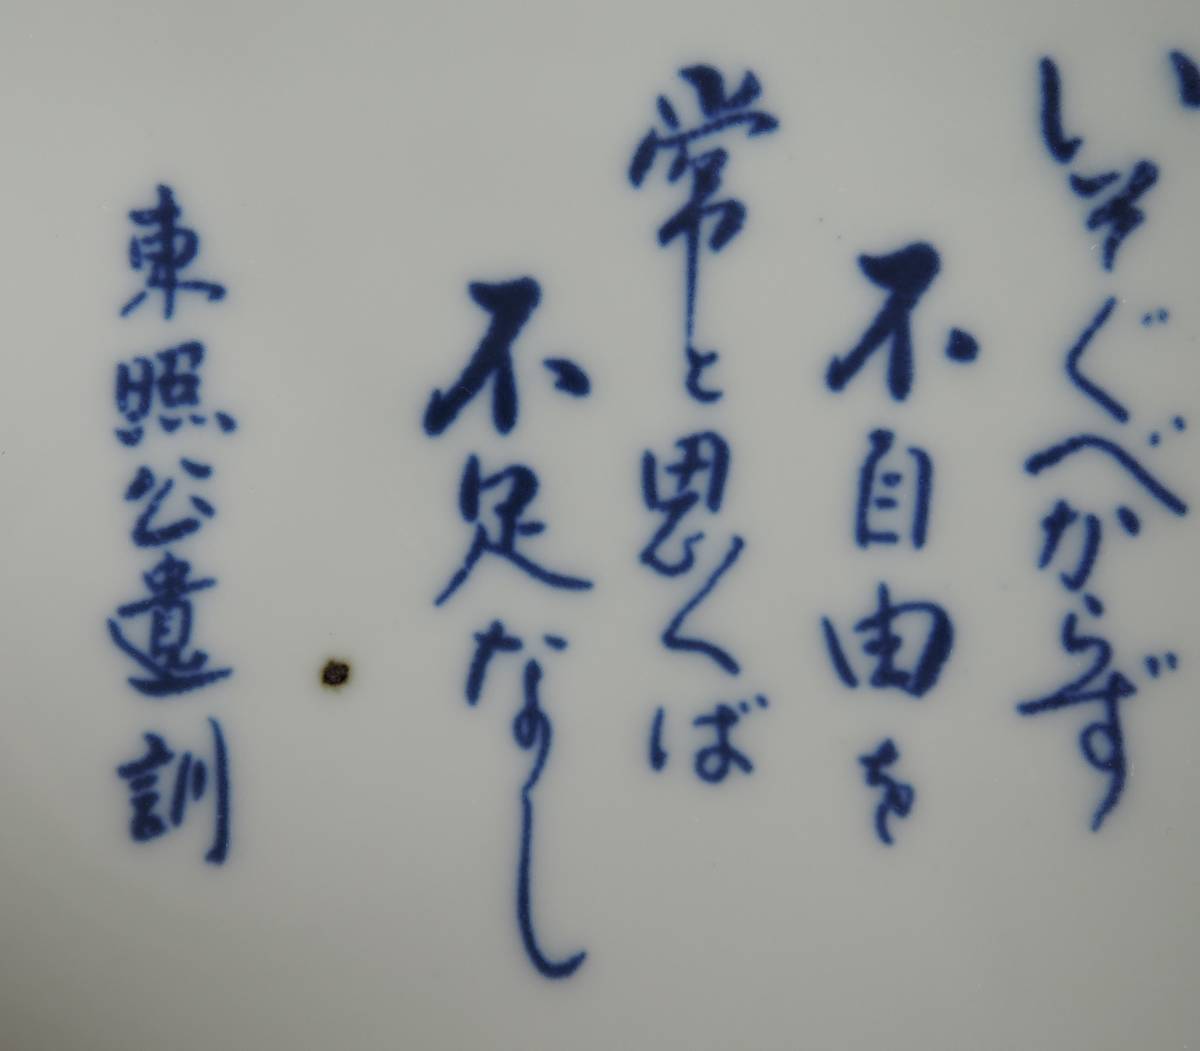 いそぐべからず
不自由を
常と思へば
不足なし
東照公遺訓